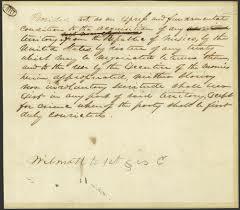 Provided that as an express and fundamental
condition to the acquisition of any
territory from the Republic of Mexico, by the
United States, by virtue of any treaty
which may be negotiated between them,
and to the use by the Executive of the moneys
herein appropriated, neither slavery
nor involuntary servitude shall ever
exist in any part of said territory, except
for crime, whereof the party shall be first
duly convicted.